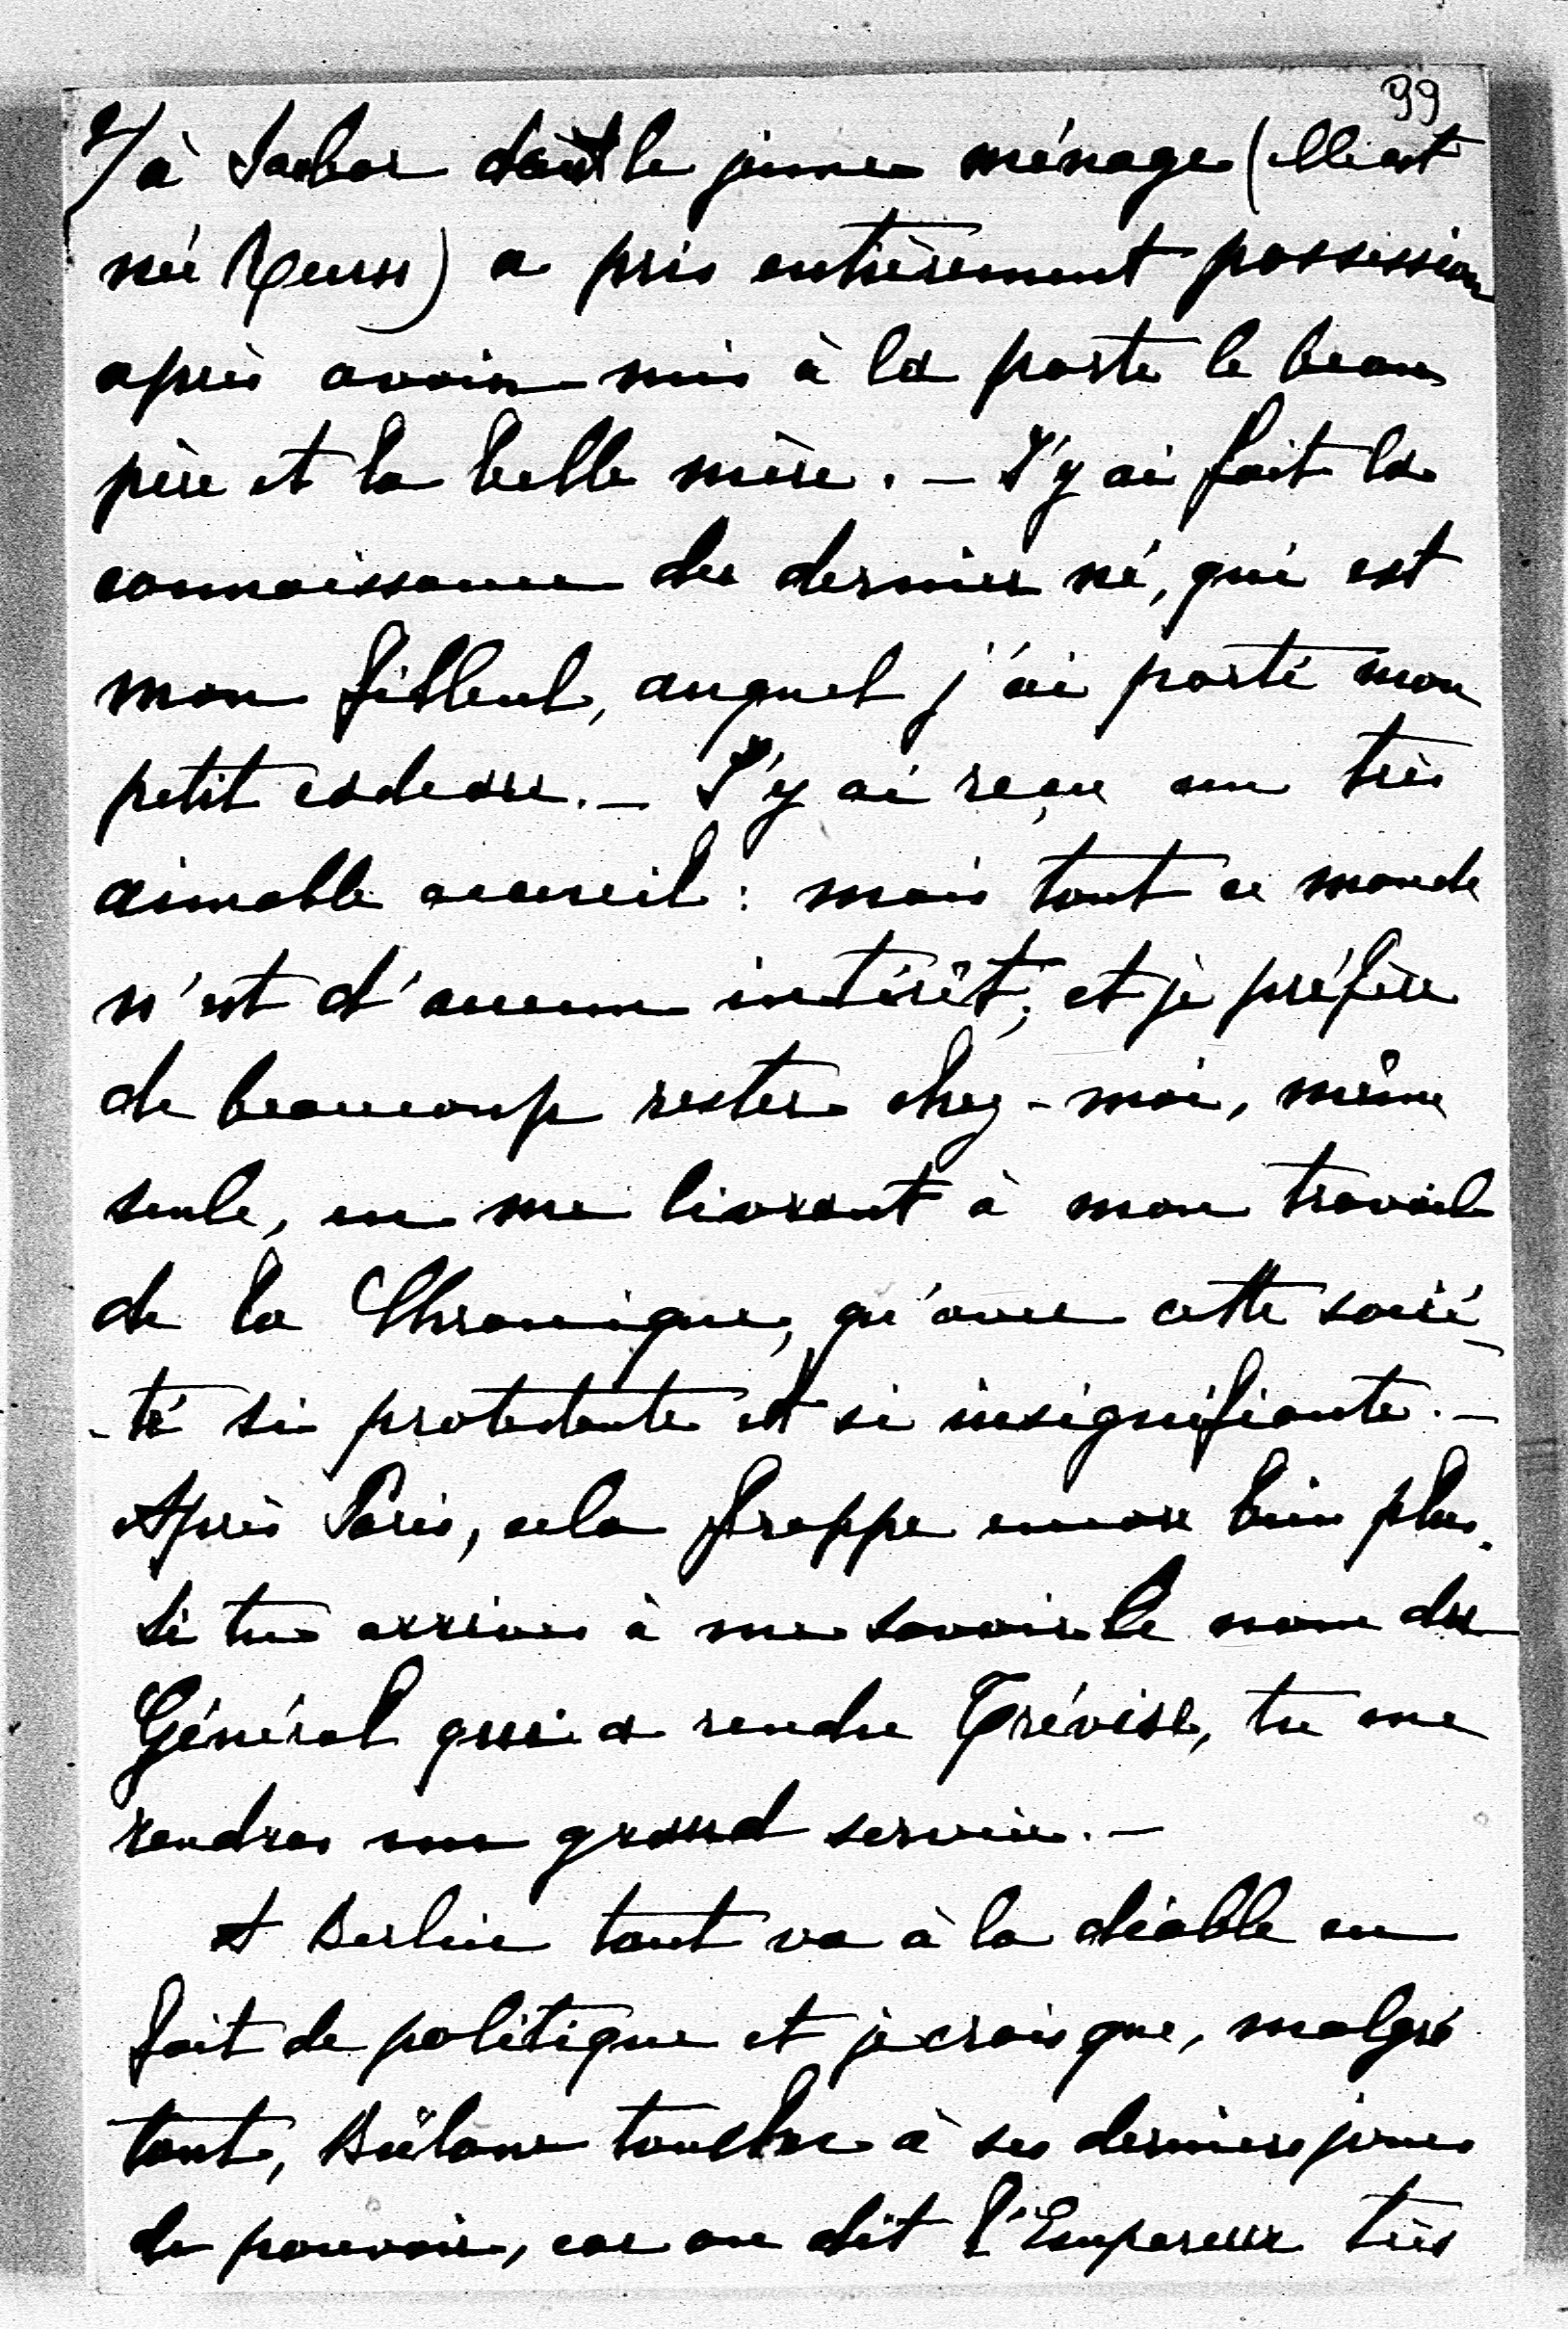 99
2/ à Saabor dont le jeune ménage (elle est
née Reuss) a pris entièrement possession
après avoir mis à la porte le beau
père et la belle mère. – J'y ai fait la
connaissance du dernier né, qui est
mon filleul, auquel j'ai porté mon
petit cadeau. – J'y ai reçu un très
aimable accueil : mais tout ce monde
n'est d'aucun intérêt, et je préfère
de beaucoup rester chez-moi, même
seule, en me livrant à mon travail
de la Chronique, qu'avec cette socié-
-té si protestante et si insignifiante. –
Après Paris, cela frappe encore bien plus.
Si tu arrives à me savoir le nom du
Général qui a rendu Trévise, tu me
rendras un grand service. –
A Berlin tout va à la diable en
fait de politique et je crois que, malgré
tout, Bülow touche à ses derniers jours
de pouvoir, car on dit l'Empereur très